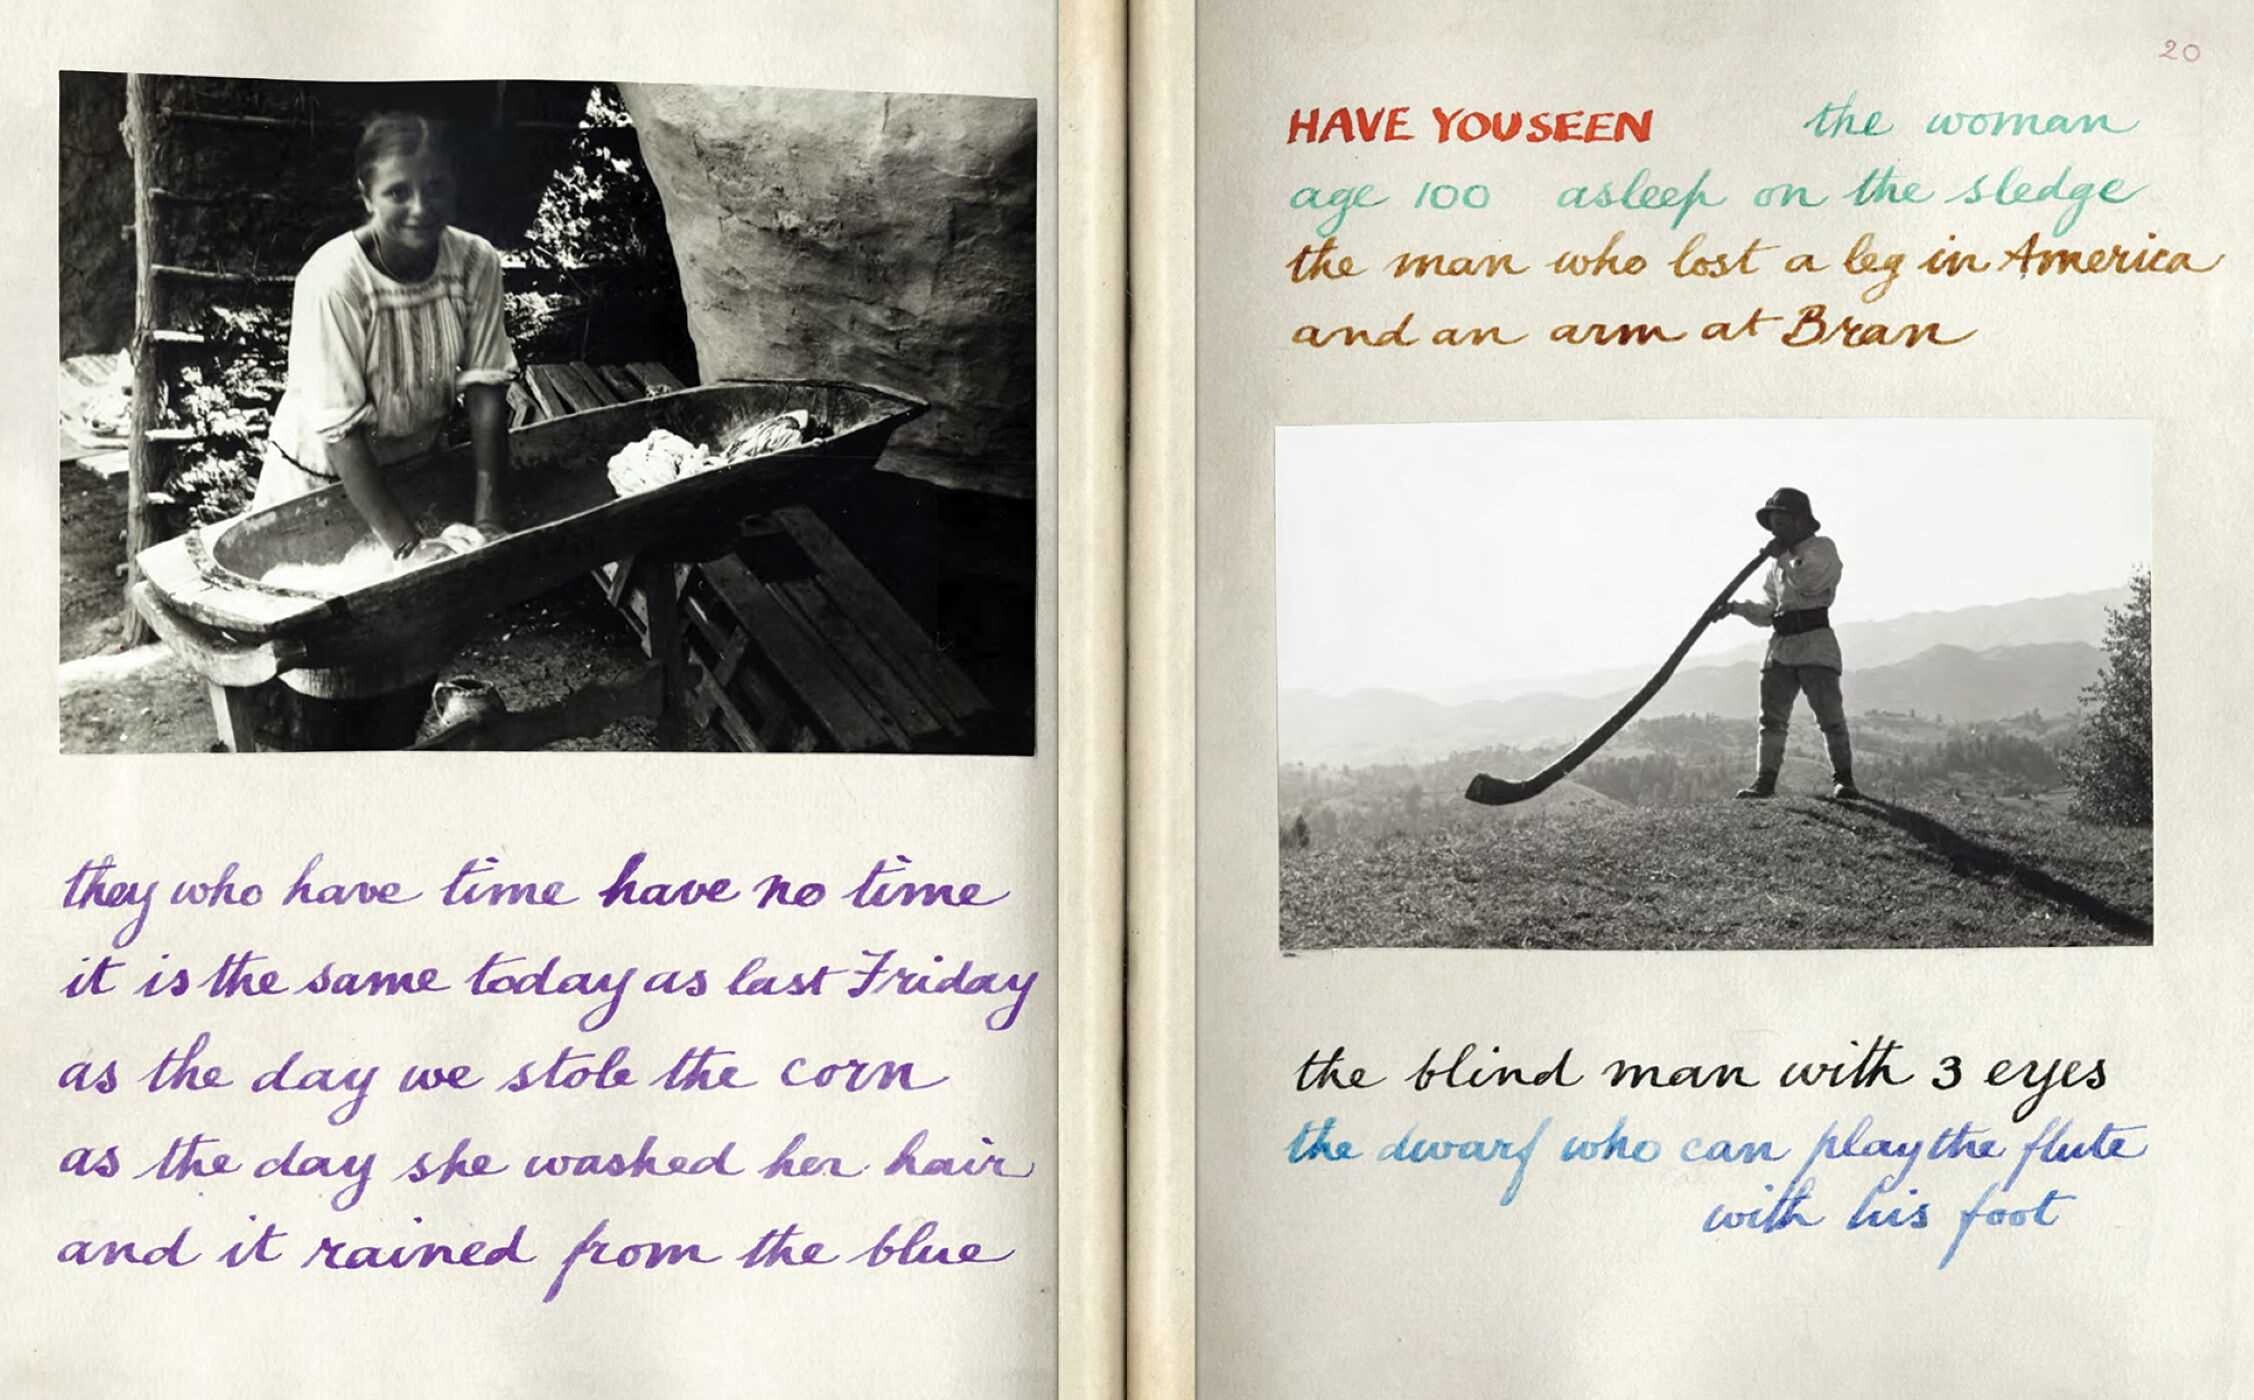 they who have time have no time
it is the same today as last Friday
as the day we stole the corn
as the day she washed her hair
and it rained from the blue
20
HAVE YOU SEEN the woman
age 100 asleep on the sledge
the man who lost a leg in America
and an arm at Bran
the blind man with 3 eyes
the dwarf who can play the flute
with his foot